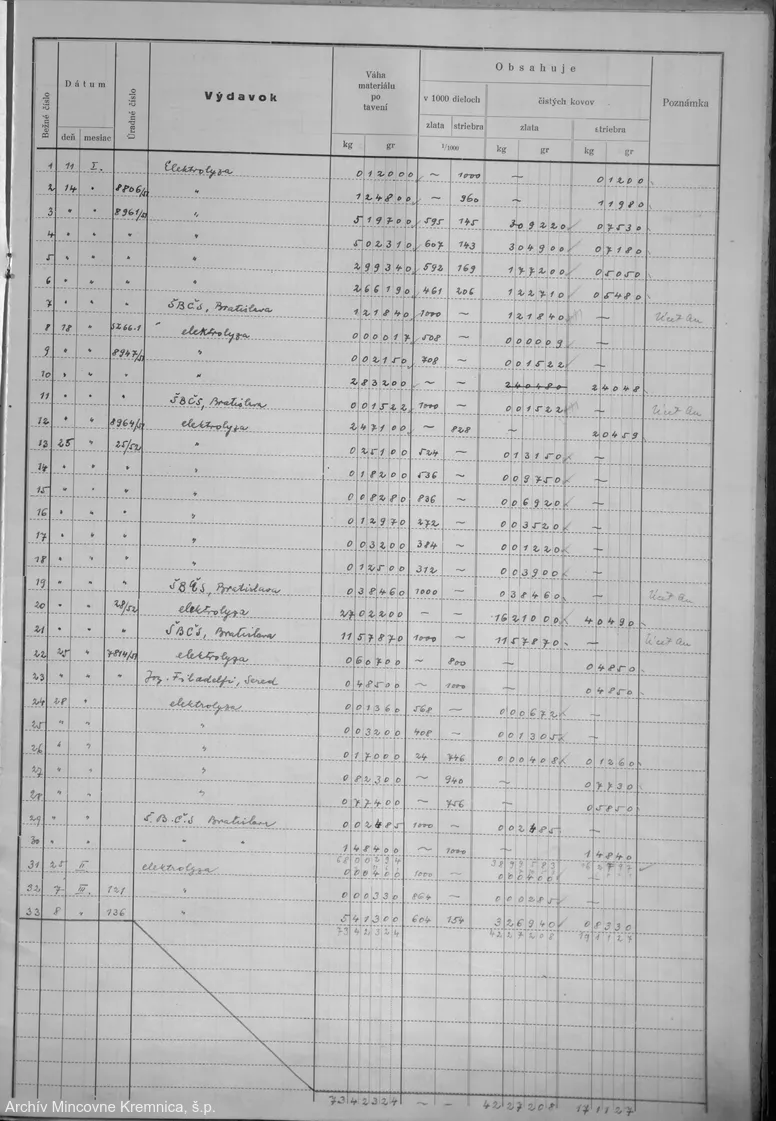 Obsahuje
Dátum
Bežné číslo
Úradné číslo
Výdavok
Váha materiálu po tavení
v 1000 dieloch
čistých kovov
Poznámka
deň mesiac
zlata striebra
zlata
striebra
kg gr 1/1000 kg gr kg gr
1 11 I. Elektrolyza 012000 ~ 1000 — 01200
2 14 " 8806/51 " 124800 ~ 960 — 11980
3 " " 8961/51 " 519700 595 145 309220 07530
4 " " " " 502310 607 143 304900 07180
5 " " " " 299340 592 169 177200 05050
6 " " " " 266190 461 206 122710 05480
7 " " " ŠBČS, Bratislava 121840 1000 — 121840 —
8 18 " 5266.1 elektrolyza 000017 508 — 000009 —
9 " " 8947/51 " 002150 708 — 001522 —
10 " " " " 283200 ~ — 240480 24048
11 " " " ŠBČS, Bratislava 001522 1000 — 001522 —
12 " " 8964/51 elektrolyza 247100 ~ 828 — 20459
13 25 " 25/52 " 025100 524 — 013150 —
14 " " " " 018200 536 — 009750 —
15 " " " " 008280 836 — 006920 —
16 " " " " 012970 272 — 003520 —
17 " " " " 003200 384 — 001220 —
18 " " " " 012500 312 — 003900 —
19 " " " ŠBČS, Bratislava 038460 1000 — 038460 —
20 " " 28/52 elektrolyza 2702200 — — 1621000 40490
21 " " " ŠBČS, Bratislava 1157870 1000 — 1157870 —
22 25 " 7814/51 elektrolyza 060700 ~ 800 — 04850
23 " " " Sered 048500 ~ 1000 — 04850
24 28 " elektrolyza 001360 568 — 000672 —
25 " " " 003200 408 — 001305 —
26 " " " 017000 24 746 000408 01260
27 " " " 082300 ~ 940 — 07730
28 " " " 077400 ~ 756 — 05850
29 " " Š.B.Č.S Bratislava 002485 1000 — 002485 —
30 " " " " 148400 ~ 1000 — 14840
6800294 3899583
31 25 II. elektrolyza 000400 1000 — 000400 —
32 7 III. 121 " 000330 864 — 000285 —
33 8 " 136 " 541300 604 154 326940 08330
7342324 4227208 171127
7342324 ~ — 4227208 171127
Archív Mincovne Kremnica, š.p.